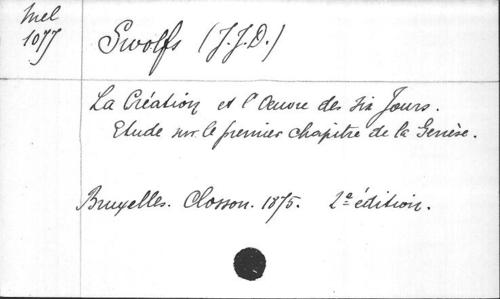 Mel
1077
Swolfs (J.J.D.)
La Création et l'Œuvre des six Jours.
Etude sur le premier chapitre de la Genèse.
Bruxelles. Closson. 1875. 2e édition.